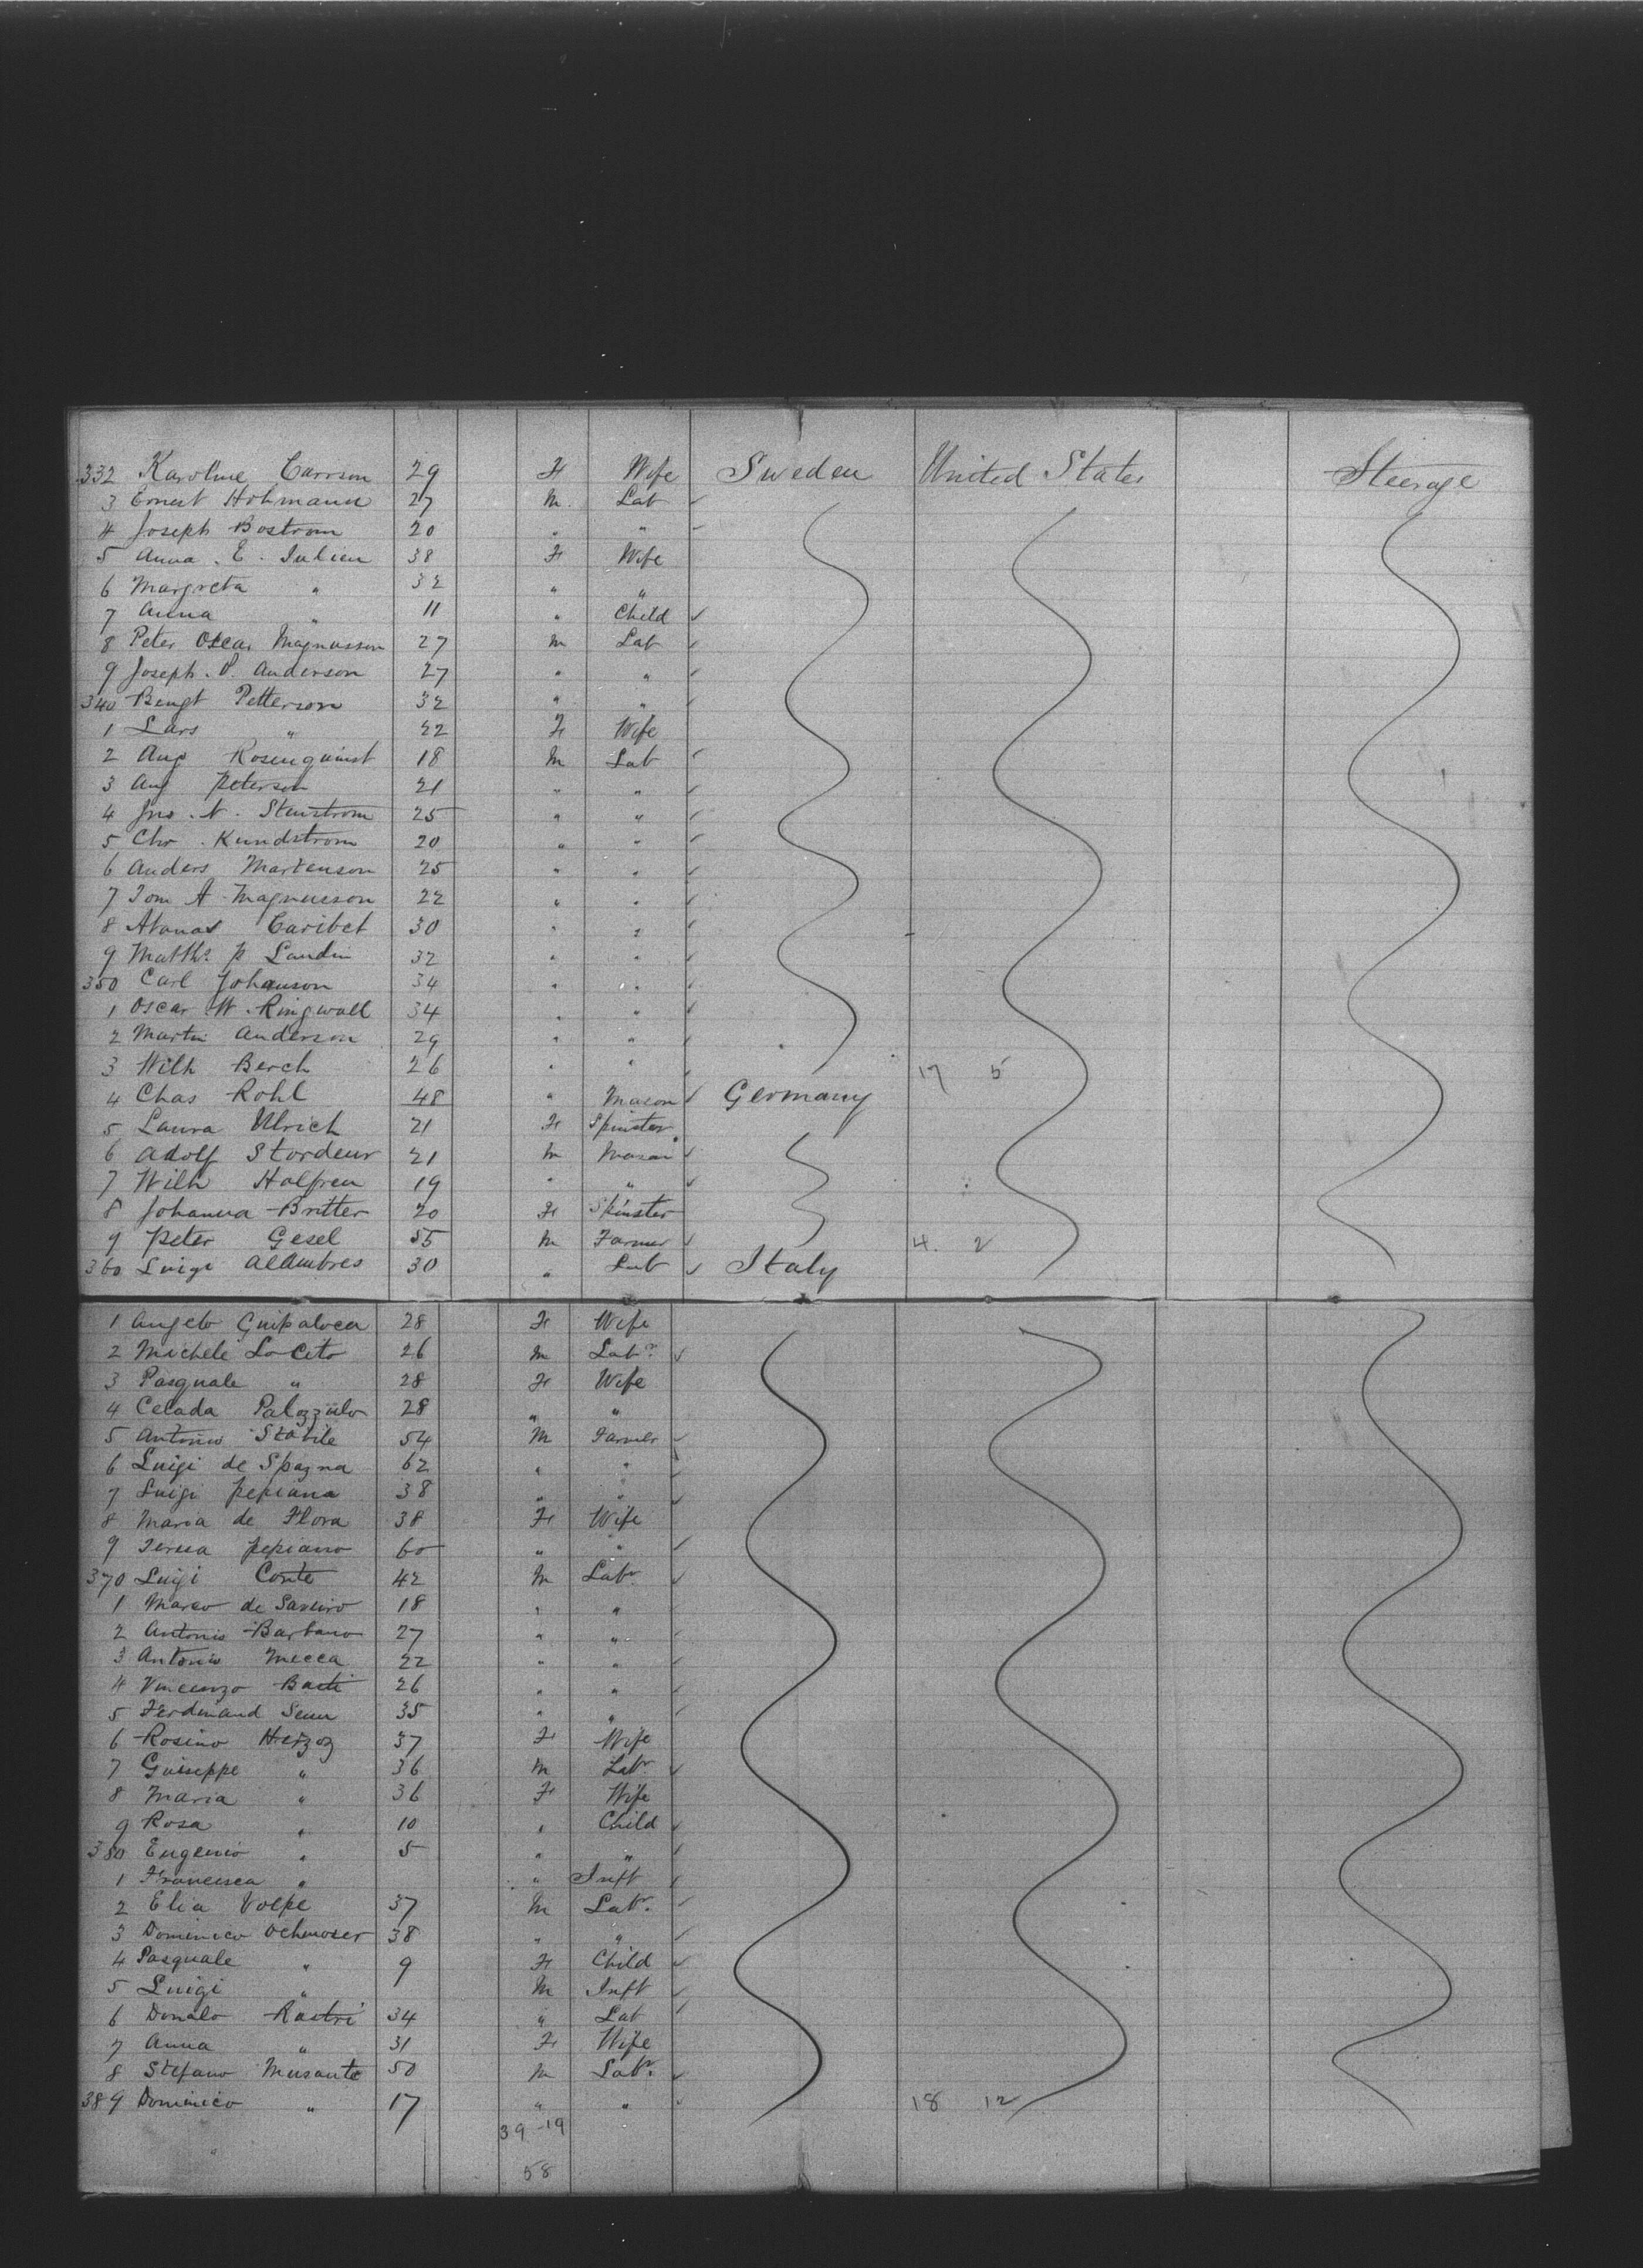 332 Karoline Carrson 29 F Wife Sweden United States Steerage
3 Ernest Hohmann 27 M. Lab
4 Joseph Bostrom 20 " "
5 Anna . E . Julien 38 F Wife
6 Margreta " 32 " "
7 Anna " 11 " Child
8 Peter Oscar Magnusson 27 M Lab
9 Joseph . P. Anderson 27 " "
340 Bengt Petterson 32 " "
1 Lars " 22 F Wife
2 Aug Rosenquinst 18 M Lab
3 Aug Peterson 21 " "
4 Jno . N . Stenstrom 25 " "
5 Chr . Kundstrom 20 " "
6 Anders Martenson 25 " "
7 Tom A Magnusson 22 " "
8 Atanas Caribet 30 " "
9 Matths. P Landin 32 " "
350 Carl Johanson 34 " "
1 Oscar W . Ringwall 34 " "
2 Martin Anderson 29 " "
3 Wilh Berch 26 " " 17 5
4 Chas Rohl 48 " Mason Germany
5 Laura Ulrich 21 F Spinster
6 Adolf Stordeur 21 M Mason
7 Wilh Halfren 19 " "
8 Johanna Britter 20 F Spinster
9 Peter Gesel 55 M Farmer 4. 2
360 Luigi Alambres 30 " Lab Italy
1 Angelo 28 F Wife
2 Michele Lo Cito 26 M Labr
3 Pasquale " 28 F Wife
4 Celada Palozzulo 28 " "
5 Antonio Stabile 54 M Farmer
6 Luigi de Spagna 62 " "
7 Luigi Pepiana 38 " "
8 Maria de Flora 38 F Wife
9 Teresa Pepiano 60 " "
370 Luigi Conte 42 M Labr
1 Marco de 18 " "
2 Antonio Barbano 27 " "
3 Antonio Mecca 22 " "
4 Vincenzo 26 " "
5 Ferdinand Senn 35 " "
6 Rosino Herzog 37 F Wife
7 Guiseppe " 36 M Labr
8 Maria " 36 F Wife
9 Rosa " 10 " Child
380 Eugenio " 5 " "
1 Francesca " " Inft
2 Elia Volpe 37 M Labr.
3 Dominico Ochmoser 38 " "
4 Pasquale " 9 F Child
5 Luigi " M Inft
6 Donalo Rastri 34 " Lab
7 Anna " 31 F Wife
8 Stefano Musante 50 M Labr.
389 Dominico " 17 " " 18 12
39 - 19
58